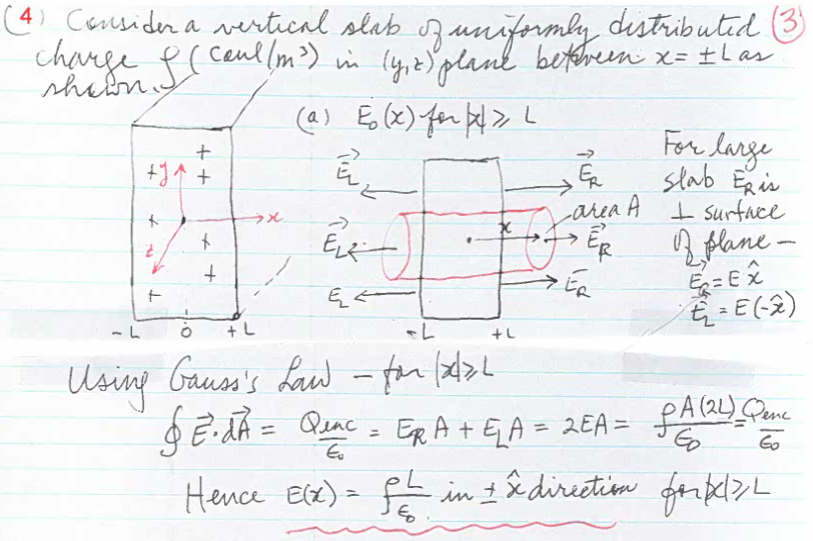 (4) Consider a vertical slab of uniformly distributed (3)
charge ρ (coul/m³) in (y,z) plane between x= ±L as
shown.
(a) E₀(x) for |x| ≥ L
+ y + +
+ x
z +
+ +
-L 0 +L
E⃗_L E⃗_R
area A
x
E⃗_L E⃗_R
E_L E⃗_R
-L +L
For large
slab E⃗_R is
⊥ surface
of plane —
E⃗_R = E x̂
E⃗_L = E(-x̂)
Using Gauss's Law — for |x| ≥ L
∮ E⃗·dA⃗ = Qenc/ε₀ = E_R A + E_L A = 2EA = ρA(2L)/ε₀ = Qenc/ε₀
Hence E(x) = ρL/ε₀ in ± x̂ direction for |x| ≥ L